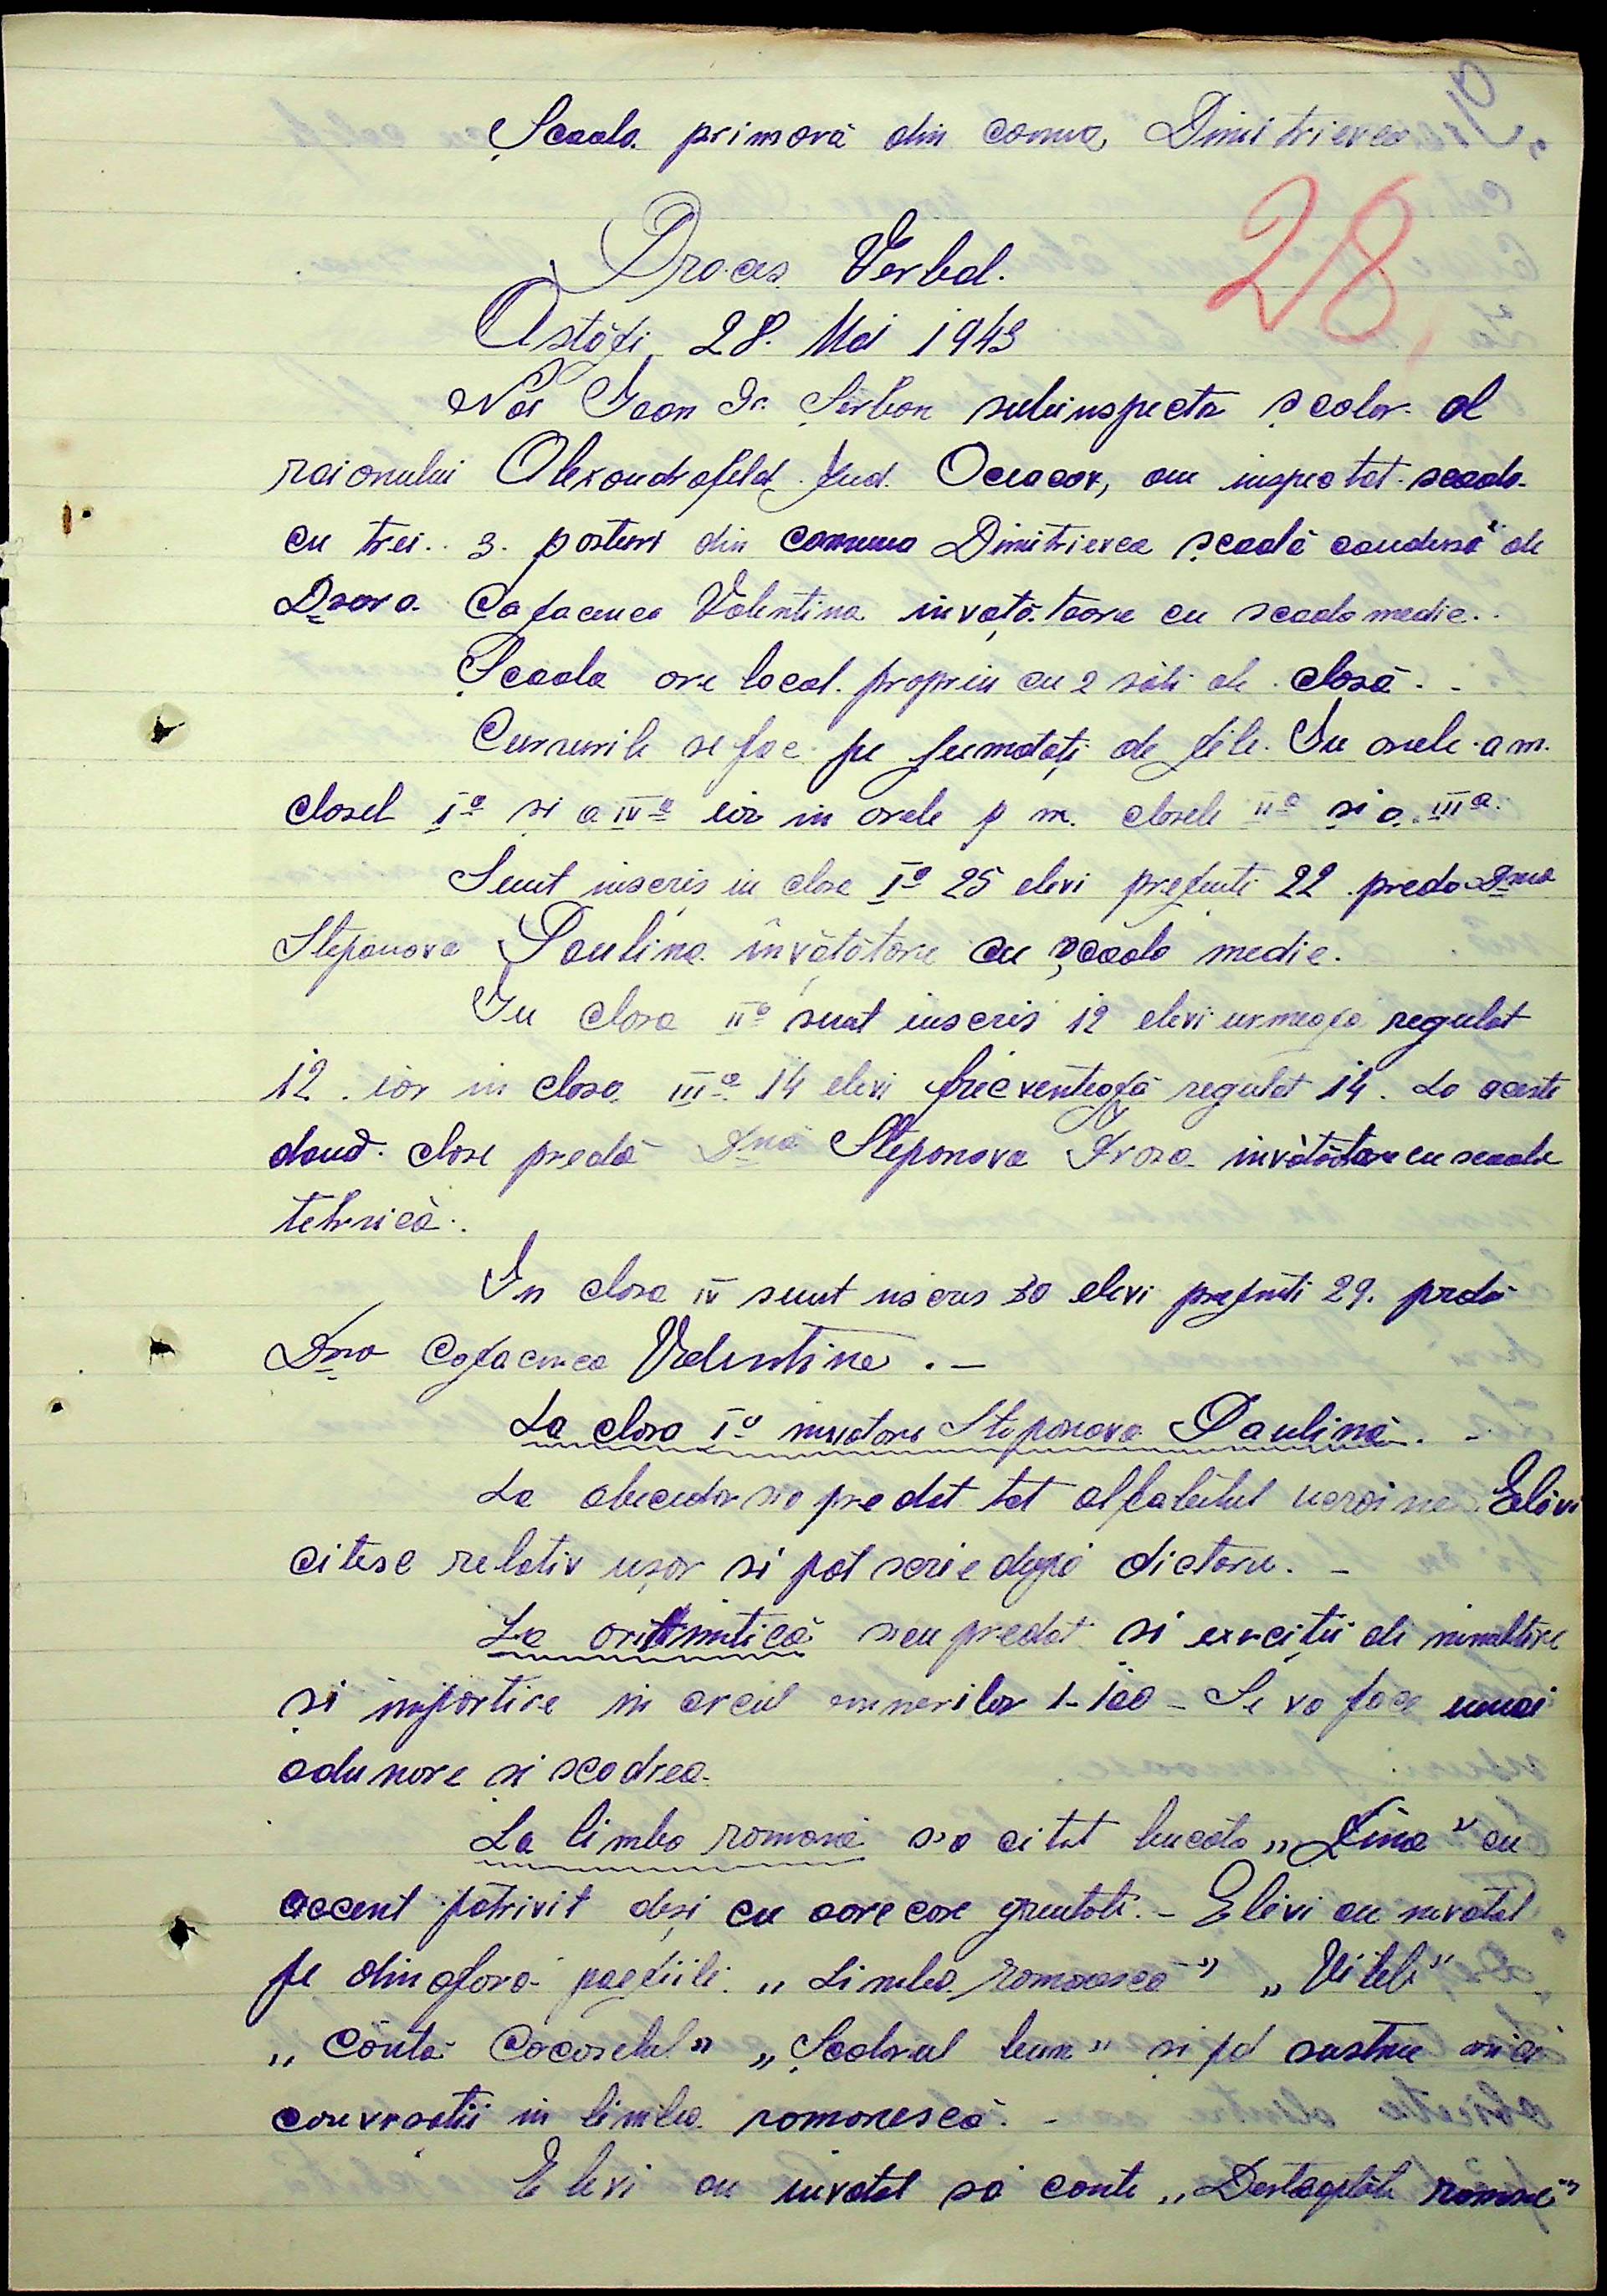 Școala primară din comuna Dimitrievca
28,
Proces Verbal.
Astăzi 28. Mai 1943
Noi Ioan Gr. Șerban subinspector școlar al
raionului Alexandrofeld Jud. Oceacov, am inspectat școala
cu trei 3. posturi din comuna Dimitrievca școală condusă de
Dșoara Cazacenco Valentina învățătoare cu școala medie.
Școala are local propriu cu 2 săli de clasă. -
Cursurile se fac pe jumătăți de zile. In orele a m.
clasele I-a și a IV-a iar in orele p m. clasele II-a și a III-a.
Sunt inscriș in clasa I-a 25 elevi prezenti 22 preda Dna
Stepanova Paulina învățătoare cu școala medie.
In clasa II-a sunt inscris 12 elevi urmează regulat
12. iar in clasa III-a 14 elevi frecventează regulat 14. La aceste
două clase predă Dna Stepanova învățătoare cu scoala
tehnică.
In clasa IV sunt inscris 30 elevi prezenti 29. predă
Dna Cazacenco Valentina. -
La clasa I-a Stepanova Paulina. -
La abecedar s'a predat tot alfabetul Elevi
citesc relativ ușor si pot scrie după dictare. -
La aritmitică s'au predat si exerciții de inmultire
și impartire in cercul numerilor 1-100 - Se va face numai
adunare si scadrea.
La limba romană s'a citat bucata „Zina" cu
accent potrivit deși cu oare care greutati. - Elevi au invatat
pe dinafara poeziile „Limba romaneasca" „Vitele"
„Cântă Cocoselul" „Scolarul bun" si pot sustine mici
conversatii in limba romanescă. -
Elevi au invatat să cante „Desteaptăte romane"